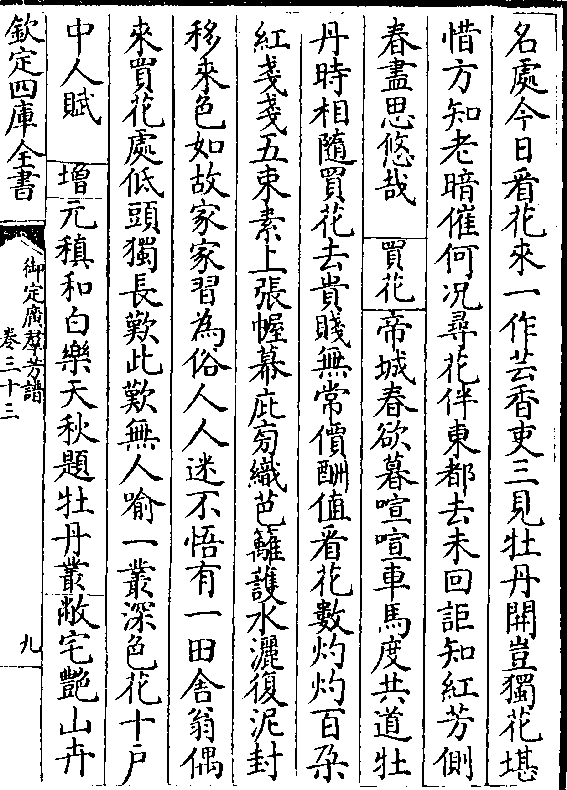 名處今日看花來一作芸香吏三見牡丹開豈獨花堪
惜方知老暗催何况尋花伴東都去未回詎知紅芳側
春盡思悠哉　買花　帝城春欲暮喧喧車馬度共道牡
丹時相隨買花去貴賤無常價酬值看花數灼灼百朶
紅戔戔五束素上張幄幕庇旁織芭籬護水灑復泥封
移來色如故家家習為俗人人迷不悟有一田舍翁偶
來買花處低頭獨長歎此歎無人喻一叢深色花十戶
中人賦　增　元稹和白樂天秋題牡丹叢敝宅艷山卉
欽定四庫全書
御定廣羣芳譜
卷三十三
九